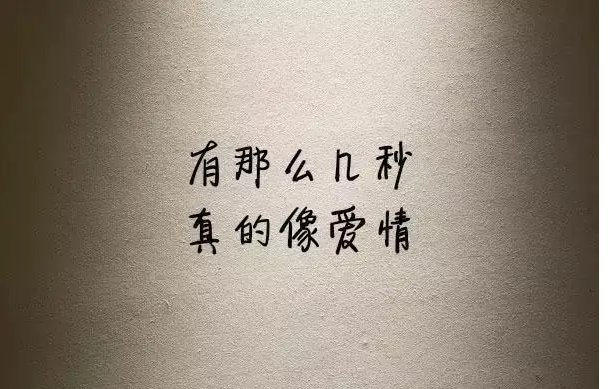 有那么几秒
真的像爱情